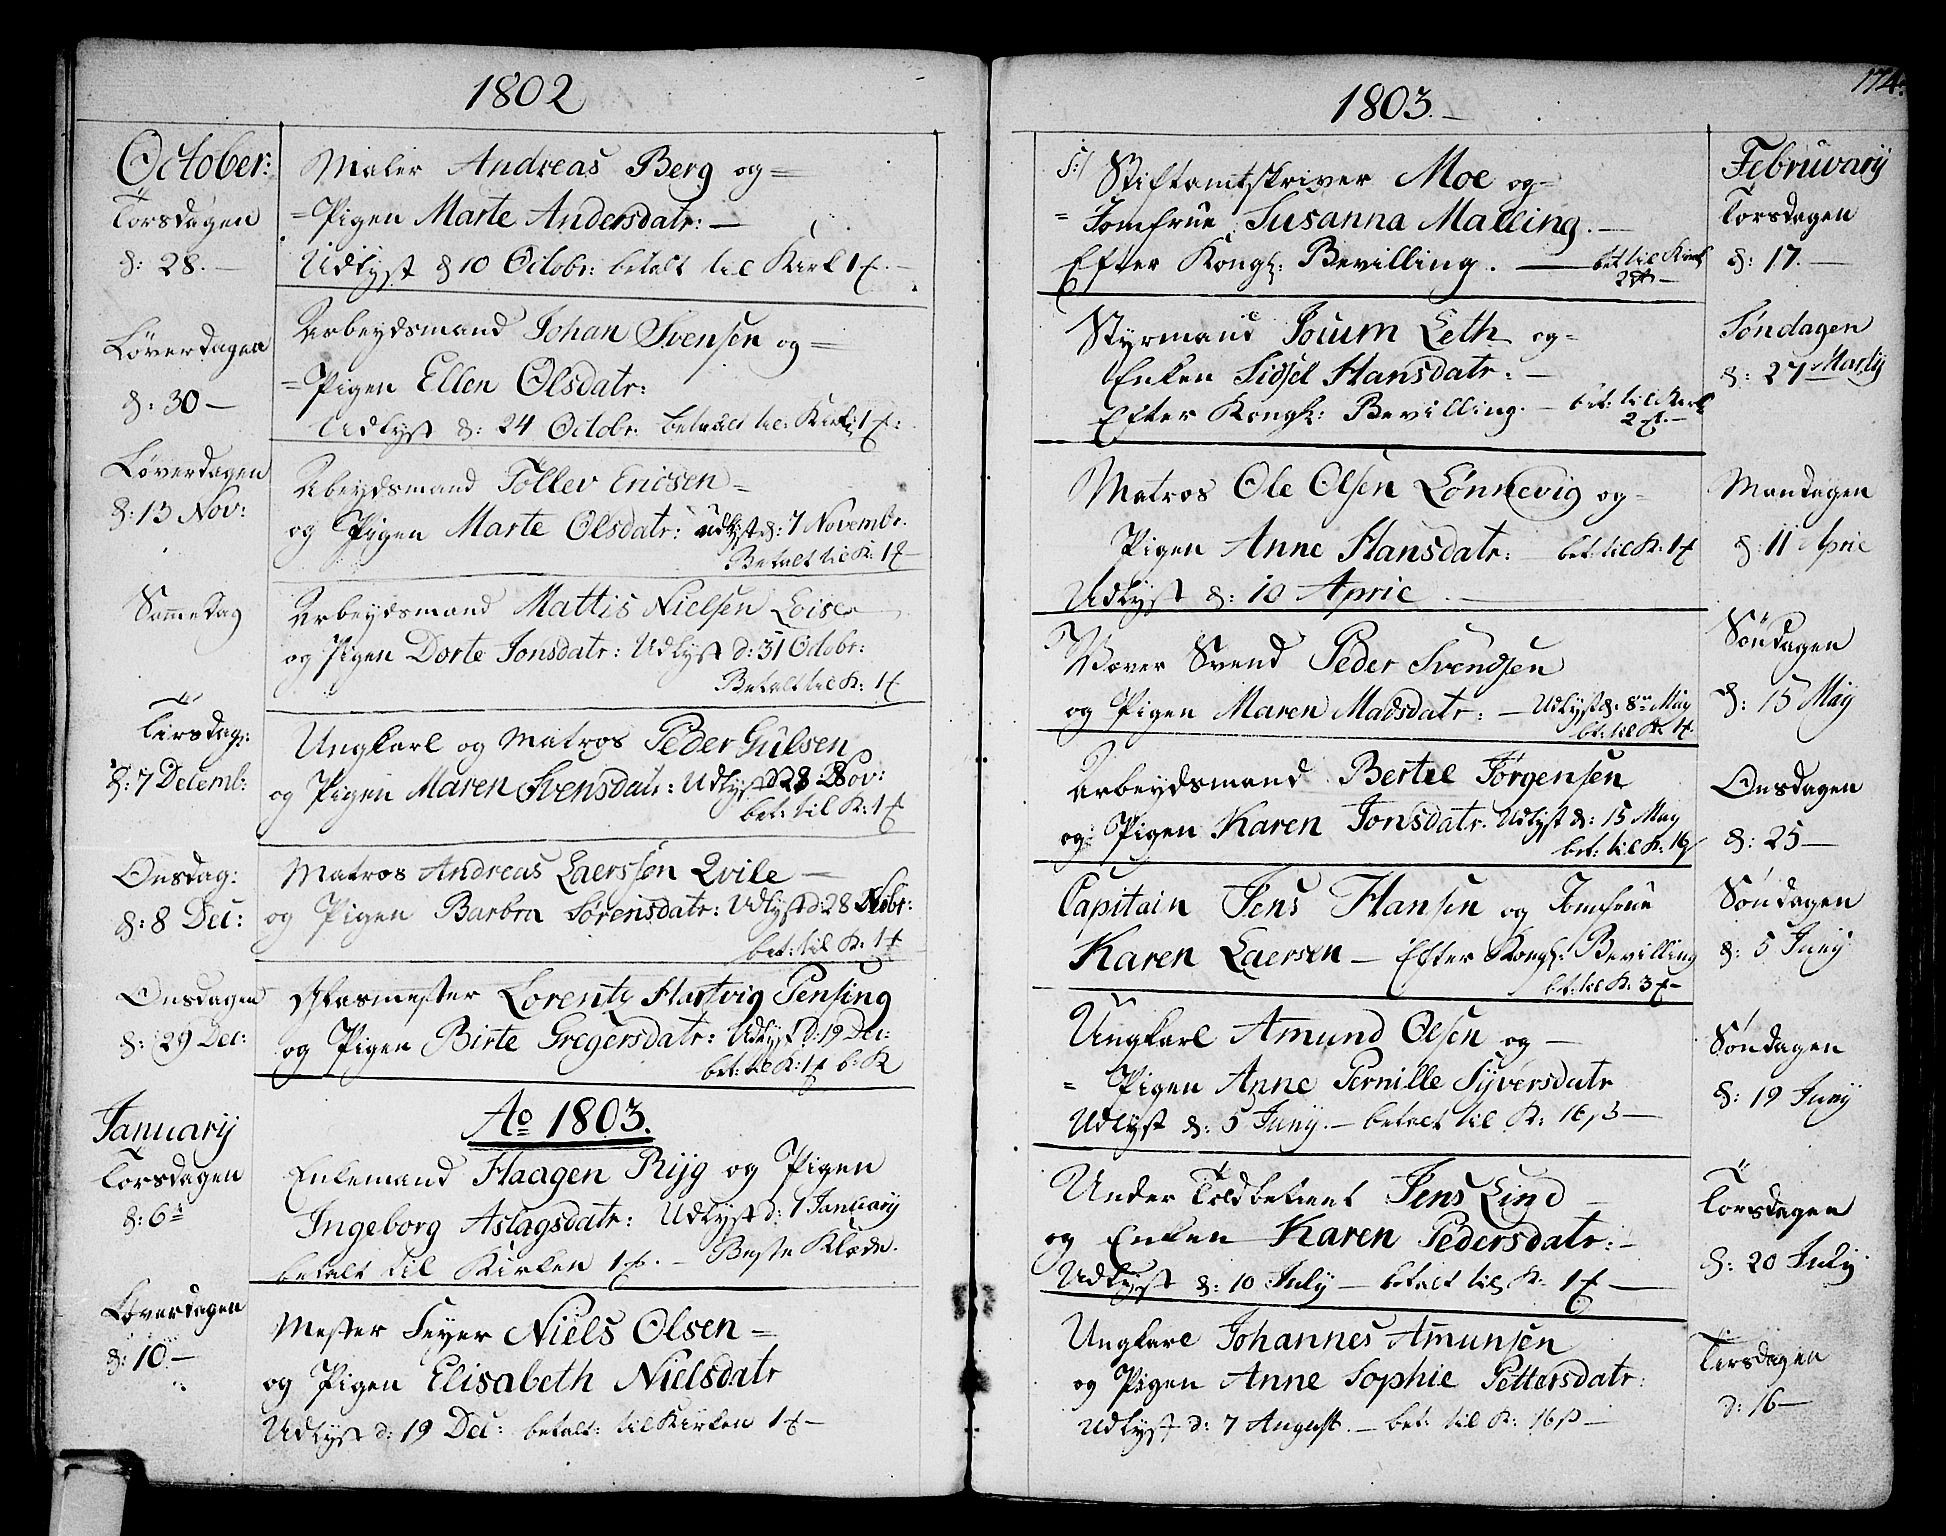 1802
October:
Torsdagen
d: 28. —
Maler Andreas Berg og =
= Pigen Marte Andersdatr: —
Udlyst d 10 Octobr: betalt til Kirk 1 f. —
Løverdagen
d: 30 —
Arbeydsmand Johan Svensen og =
= Pigen Ellen Olsdatr:
Udlyst d: 24 Octobr: betalt til Kirk: 1 f:
Løverdagen
d: 13 Nov:
Abeydsmand Tollev Ericsen =
og Pigen Marte Olsdatr: udlyst d: 7 Novembr.
Betalt til K: 1 f —
Samme Dag
Arbeydsmand Mattis Nielsen
og Pigen Dorte Jonsdatr: Udlyst d: 31 Octobr:
Betalt til K: 1 f
Tirsdag:
d: 7 Decemb:
Ungkarl og Matros Peder Gulsen
og Pigen Maren Svensdatr: Udlyst d 28 Nov:
bet: til K: 1 f
Onsdag:
d: 8 Dec:
Matros Andreas Laerssen Qvile —
og Pigen Barbra Sørensdatr: Udlyst d: 28 Nobr:
bet: til K: 1 f
Onsdagen
d: 29 Dec:
Glasmester Lorentz Hartvig Pensing
og Pigen Birte Gregersdatr: Udlyst d: 19 Dec:
bet: til K: 1 f b: K
Ao 1803.
January
Torsdagen
d: 6te
Enkemand Haagen Rijg og Pigen
Ingeborg Aslagsdatr: Udlyst d: 1 January
betalt til Kirken 1 f. — Beste Klæde.
Løverdagen
d: 10. —
Mester Feyer Niels Olsen =
og Pigen Elisabeth Nielsdatr
Udlyst d: 19 Dec: betalt: til Kirken 1 f —
1803. —
174:
Stiftamtskriver Moe og =
= Jomfrue Susanna Malling. —
Efter Kongl: Bevilling. — bet til Kirk
2 f —
Februvary
Torsdagen
d: 17. —
Styrmand Joium Leth og =
Enken Sidsel Hansdatr: —
Efter Kongl: Bevilling. — bet: til Kirk
2 f. —
Søndagen
d: 27 Martij
Matros Ole Olsen Lønnevig og =
Pigen Anne Hansdatr: bet: til K: 1 f
Udlyst d: 10 April. —
Mandagen
d: 11 April
Væver Svend Peder Svendsen
og Pigen Maren Madsdatr: — Udlyst d: 8de May
bet: til K: 1 f.
Søndagen
d: 15 May
Arbeydsmand Bertel Jørgensen
og Pigen Karen Jonsdatr. Udlyst d: 15 May
bet: til K: 16 ß
Onsdagen
d: 25 —
Capitain Jens Hansen og Jomfrue
Karen Laersen — Efter Kongl: Bevilling
bet: til K: 3 f —
Søndagen
d: 5 Junij
Ungkarl Amund Olsen og —
= Pigen Anne Pernille Syversdatr
Udlyst d: 5 Juny. — betalt til K: 16 ß —
Søndagen
d: 19 Juny
Under Toldbetient Jens Lind —
og Enken Karen Pedersdatr: —
Udlyst d: 10 July — betalt til K: 1 f —
Torsdagen
d: 20 July
Ungkarl Johannes Amunsen
og Pigen Anne Sophie Pettersdatr:
Udlyst d: 7 August. — bet: til K: 16 ß —
Tirsdagen
d: 16 —